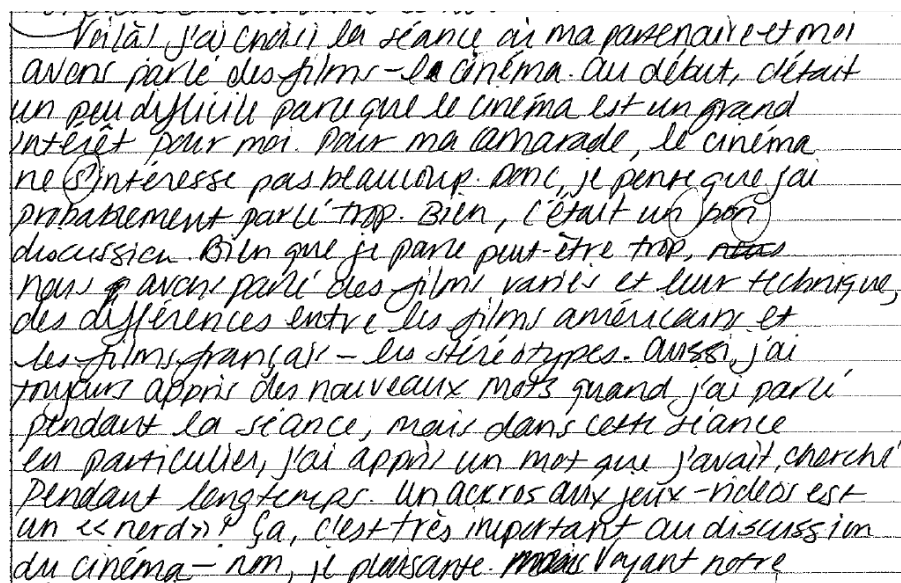 Voilà! j'ai choisi la séance où ma partenaire et moi
avons parlé des films - le cinéma. Au début, c'était
un peu difficile parce que le cinéma est un grand
intérêt pour moi. Pour ma camarade, le cinéma
ne s'intéresse pas beaucoup. Donc, je pense que j'ai
probablement parlé trop. Bien, c'était un bon
discussion. Bien que je parle peut-être trop, nous
nous avons parlé des films variés et leur technique,
des différences entre les films américains et
les films français - les stéréotypes. Aussi, j'ai
toujours appris des nouveaux mots quand j'ai parlé
pendant la séance, mais dans cette séance
en particulier, j'ai appris un mot que j'avait cherché
pendant longtemps. Un accros aux jeux-vidéos est
un «nerd»! Ça, c'est très important au discussion
du cinéma - non, je plaisante. mais Voyant notre